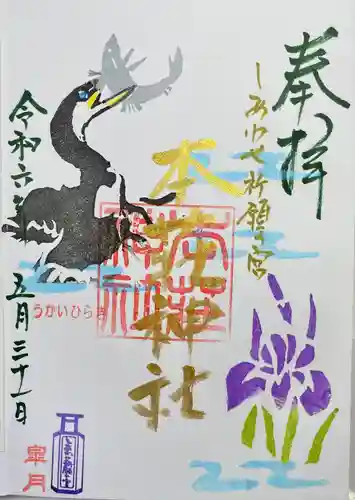 奉拝
しあわせ祈願の宮
本荘神社
令和六年
五月三十一日
うかいひらき
皐月